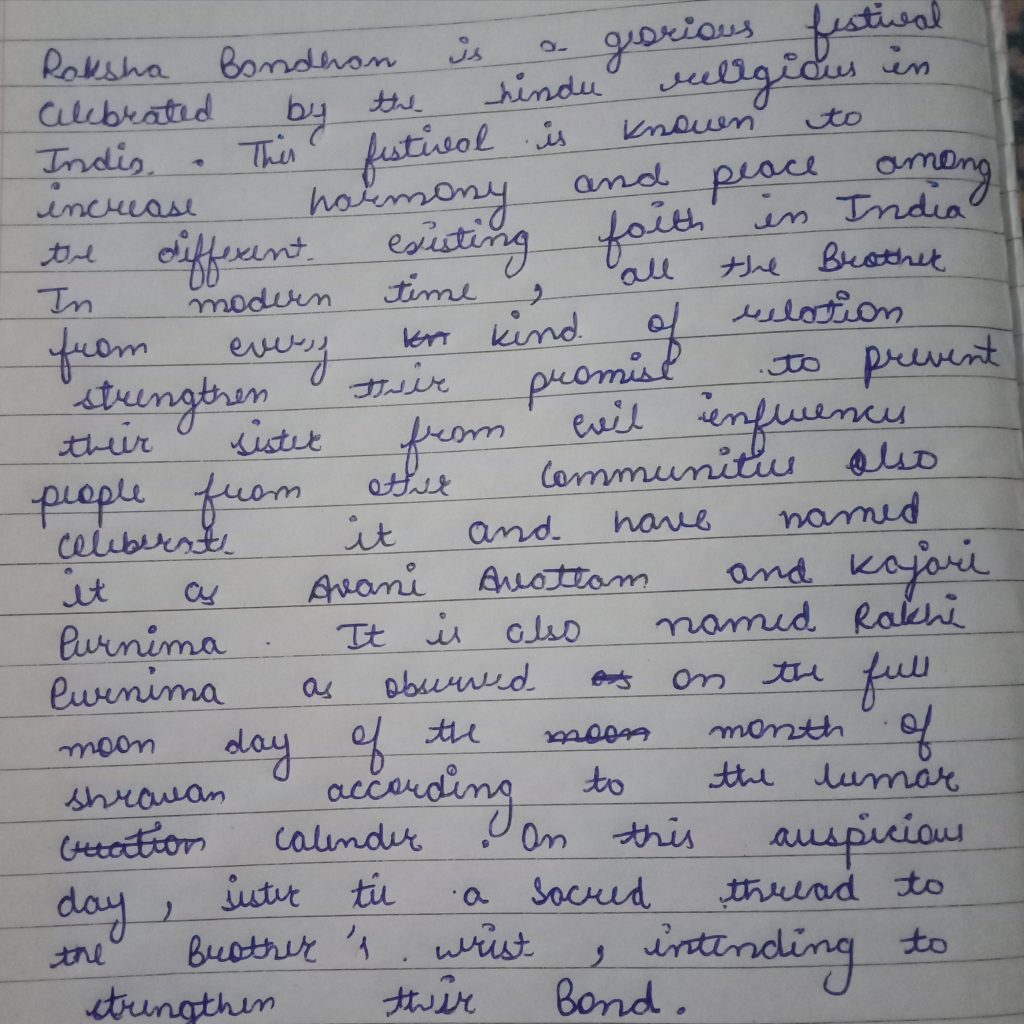 Raksha Bandhan is a glorious festival
celebrated by the hindu religious in
India. This festival is known to
increase harmony and peace among
the different existing faith in India
In modern time, all the Brother
from every kn kind of relation
strengthen their promise to prevent
their sister from evil influency
people from other communities also
celeberate it and have named
it as Avani Avottam and Kajari
Purnima. It is also named Rakhi
Purnima as observed as on the full
moon day of the moon month of
shravan according to the lumar
cuation calender. On this auspicious
day, sister tie a sacred thread to
the Brother's wrist, intending to
strengthen their Bond.